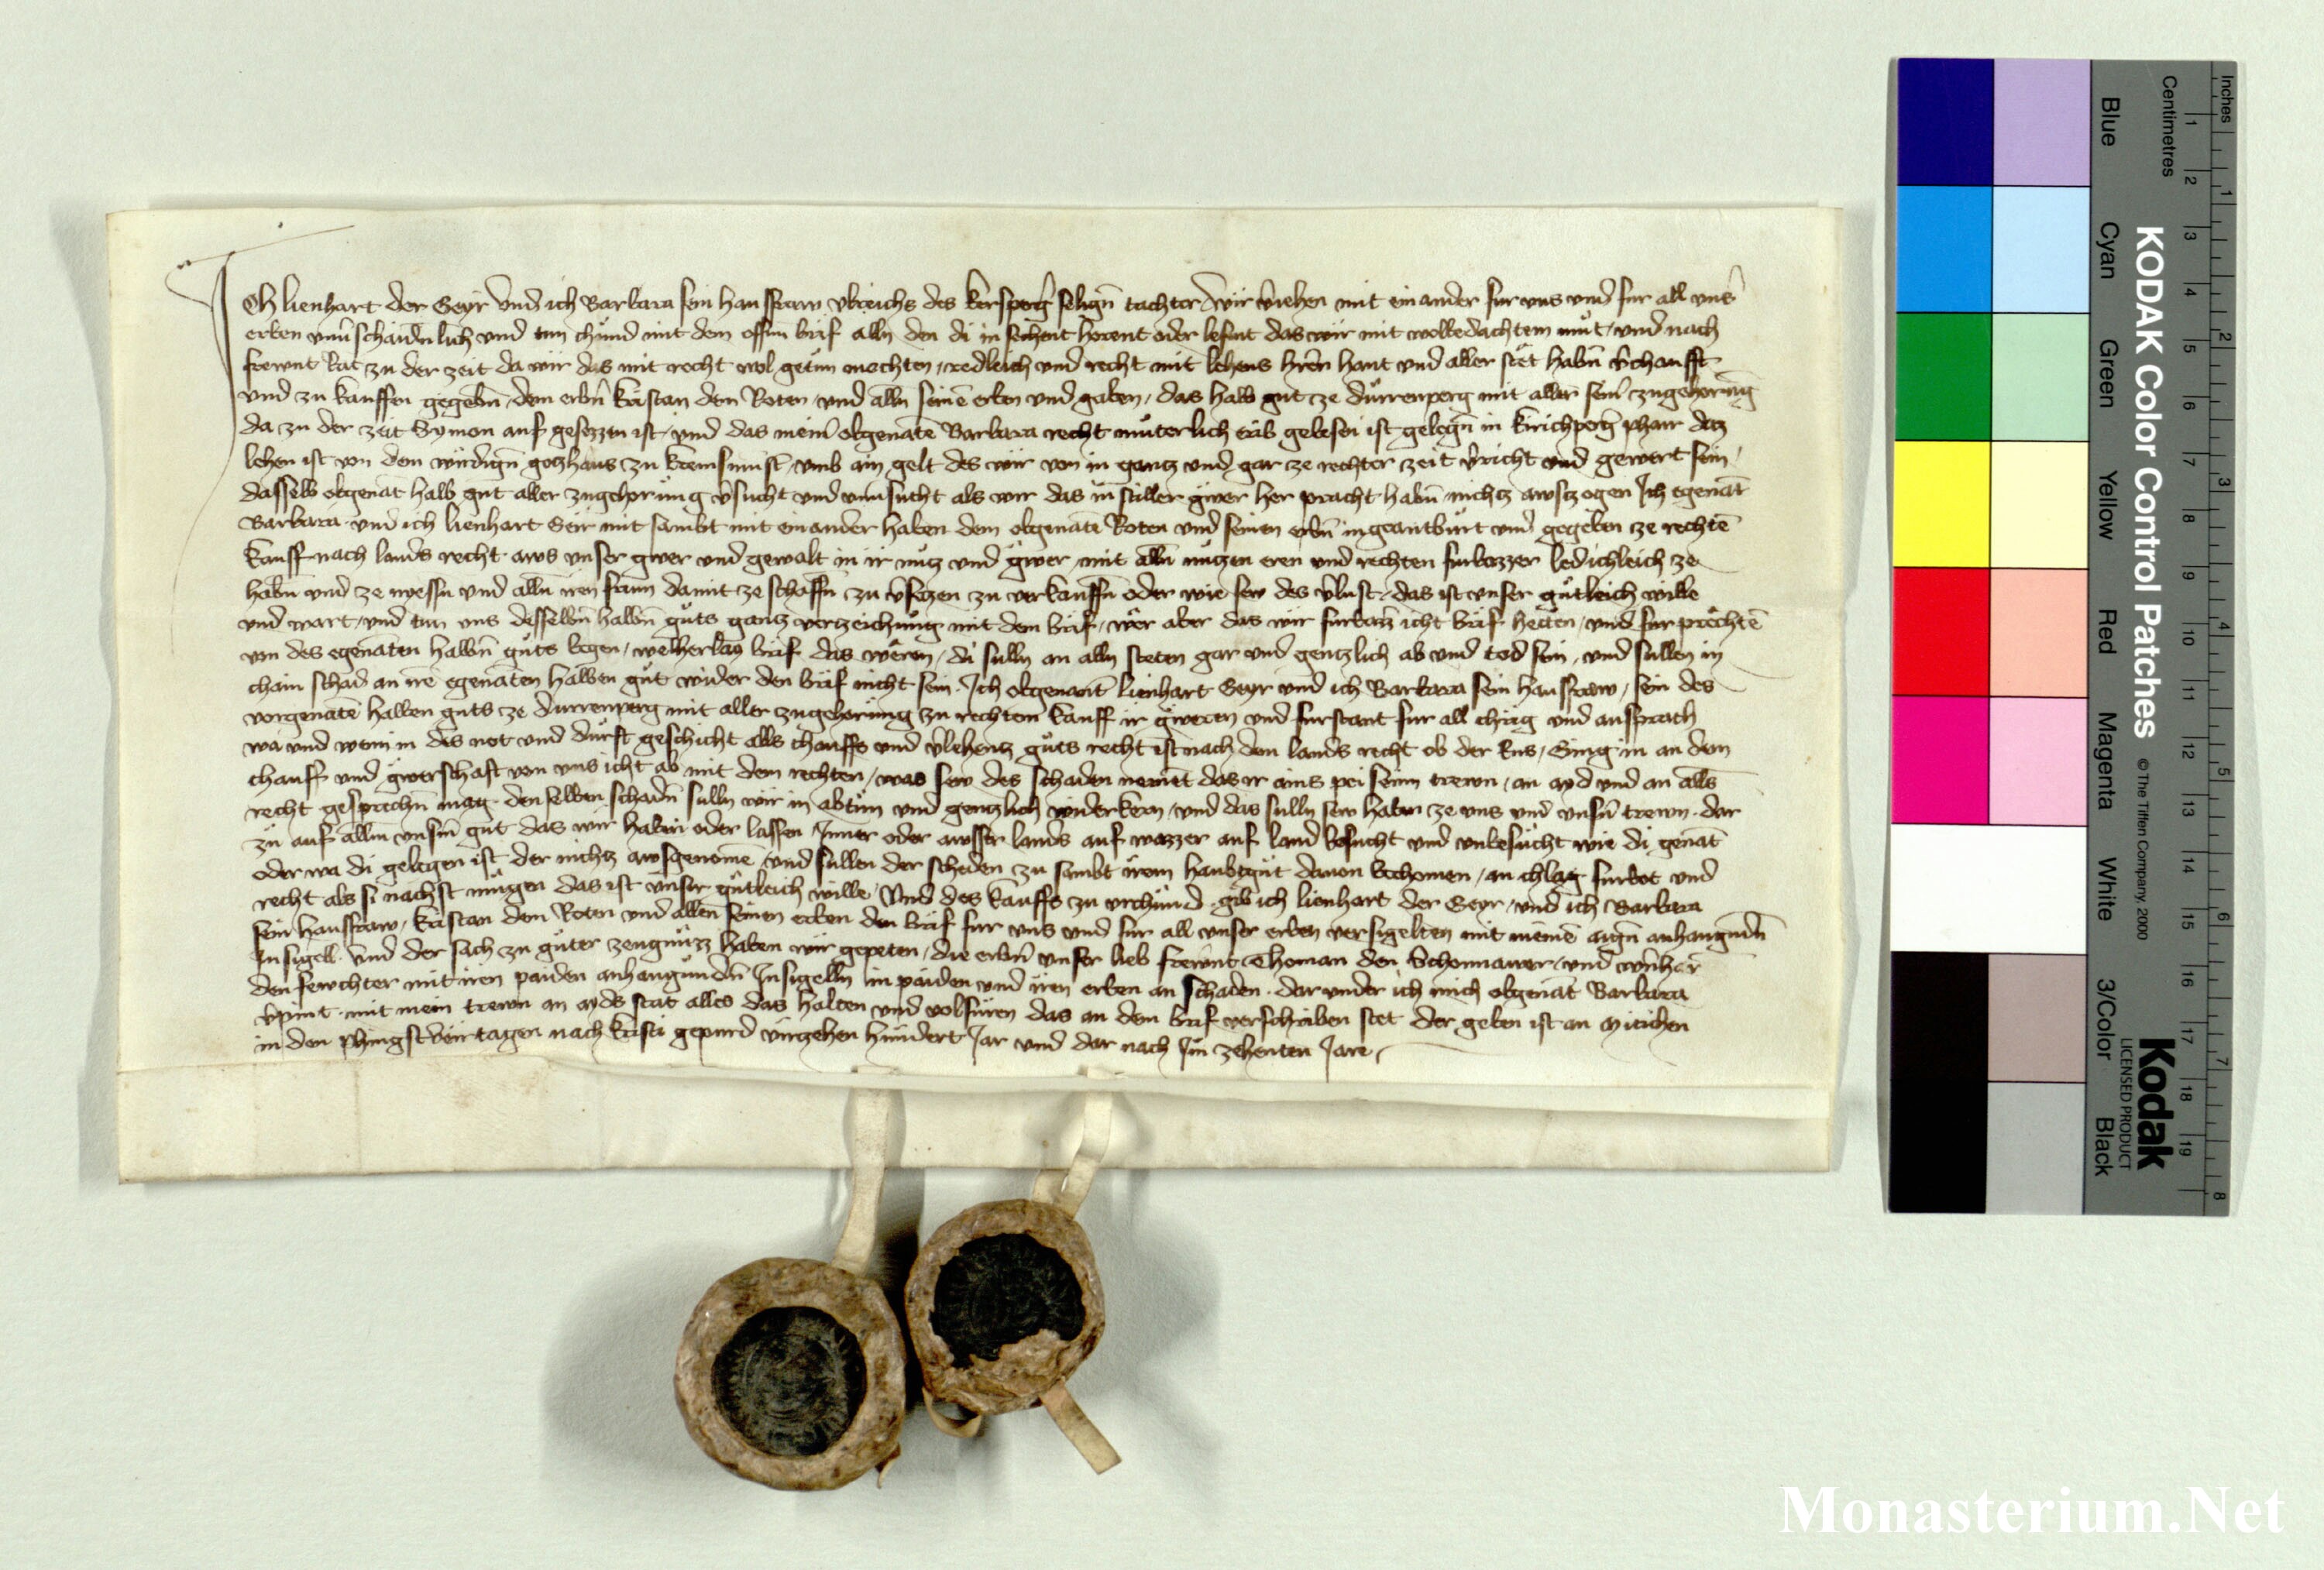 Ich lienhart der Geyr vnd ich Barbara sein hausfraw vlreichs des kersperg̃ selign̄ tachter wir v̄iehen mit ein ander fur vns vnd fur all vns̄
erben vnu̅schaidnlich vnd tun chund mit dem offm̄ brif alln den di in sechent horent oder lesent das wir mit wolbedachtem mut / vnd nach
frewnt Rat zu der zeit da wir das mit recht wol getun mochten / redleich vnd recht mit lehens hr̄en hant vnd aller stet habn̄ v̄chaufft
vnd zu kauffen gegebn̄ / dem erbn̄ kristan dem Roten / vnd alln seinē erben vnd gaben / das halb gut ze durrenperg mit aller sein̄ zugehorūg
da zu der zeit Symon auf gesezzen ist / vnd das mein̄ obgenātē Barbara recht muterlich erib gebesen ist gelegn̄ in kirichperg̃ pharr daz
lehen ist von dem wirdign̄ gotzhaus zu kremsmunst̄ / vmb ain gelt des wir von in gantz vnd gar ze rechter zeit v̄richt vnd gewert sein /
dasselb obgenāt halb gut aller zugehorung v̄sucht vnd vnu̅sucht als wir das in stiller gwer her pracht habn̄ nichtz awszogen Ich egenāt
Barbara vnd ich lienhart Geir mit sambt mit ein ander haben dem obgenātē Roten vnd seinen erbn̄ ingeantburt vnd gegeben ze rechtē
kauff nach lands recht aws vnser gwer vnd gewalt in ir nutz vnd gwer mit alln̄ nutzen eren vnd rechten furbazzer ledichleich ze
habn̄ vnd ze niessn vnd alln̄ iren frum damit ze schaffn̄ zu v̄setzen zu verkauffn̄ oder wie sew des v̄lust / das ist vnser gutleich wille
vnd wart / vnd tun vns desselbn̄ halbn̄ guts gantz vertzeichung mit dem brif / wer aber das wir furbaz icht brif hetten / vnd fur prechtē
von des egenāten halbn̄ guts begen / welherlay brif das weren / di sulln an alln steten gar vnd gentzlich ab vnd tod sein / vnd sullen in
chain schad an irē egenāten halben gut wider den brif nicht sein. Ich obgenant lienhart Geyr vnd ich Barbara sein hausfraw / sein des
vorgenātē halben guts ze durrenperg mit aller zugehorung zu rechtem kauff ir gweren vnd furstant fur all chrieg vnd ansprach
wa vnd wem in des not vnd durft geschicht alls chauffs vnd v̄lehentz guts recht ist nach dem lands recht ob der Ens / Ging in an dem
chauff vnd gwerschaft von vns icht ab mit dem rechten / was sew des schaden nement das ir ains pei seinn trewn / an ayd vnd an alls
recht gesprechn̄ mag denselben schadn̄ sulln wir in abtun vnd gentzlich widerkern / vnd das sulln sew haben ze vns vnd vnsn̄ trewn dar
zu auf allm vnsm̄ gut das wir haben oder lassen / Inner oder awsser lands auf wazzer auf land besucht vnd vnbesucht wie di genāt
oder wa di gelegen ist der nichtz awsgenomē / vnd sullen der scheden zu sambt irem haubtgut dauon bechomen / an chlag furbot vnd
recht als si nachst mugen das ist vnser gutleich wille / Vnd des kauffs zu vrchund gib ich lienhart der Geyr / vnd ich Barbara
sein hausfraw / kristan dem Roten vnd allen seinen erben den brif fur vns vnd fur all vnser erben versigelten mit meinē aign̄ anhangundn̄
Insigell. Vnd der sach zu guter zeugnuzz haben wir gepeten / die erbn̄ vnser lieb frewnt Thoman den Schonnawer / vnd wernhar̄
den fewchter mit iren paiden anhangundn̄ Insigelln in paiden vnd iren erben an schaden. dar vnder ich mich obgenāt Barbara
v̄pint mit mein trewn an ayds stat alles das halten vnd volfuren das an dem brif verschriben stet der geben ist an Mitichen
in den phingstveirtagen nach kristi gepurd virzehen hundert Jar vnd dar nach Im zehenten Jare
KODAK Color Control Patches © The Tiffen Company, 2000
Kodak
LICENSED PRODUCT
Inches 1 2 3 4 5 6 7 8
Centimetres 1 2 3 4 5 6 7 8 9 10 11 12 13 14 15 16 17 18 19
Blue Cyan Green Yellow Red Magenta White 3/Color Black
Monasterium.Net